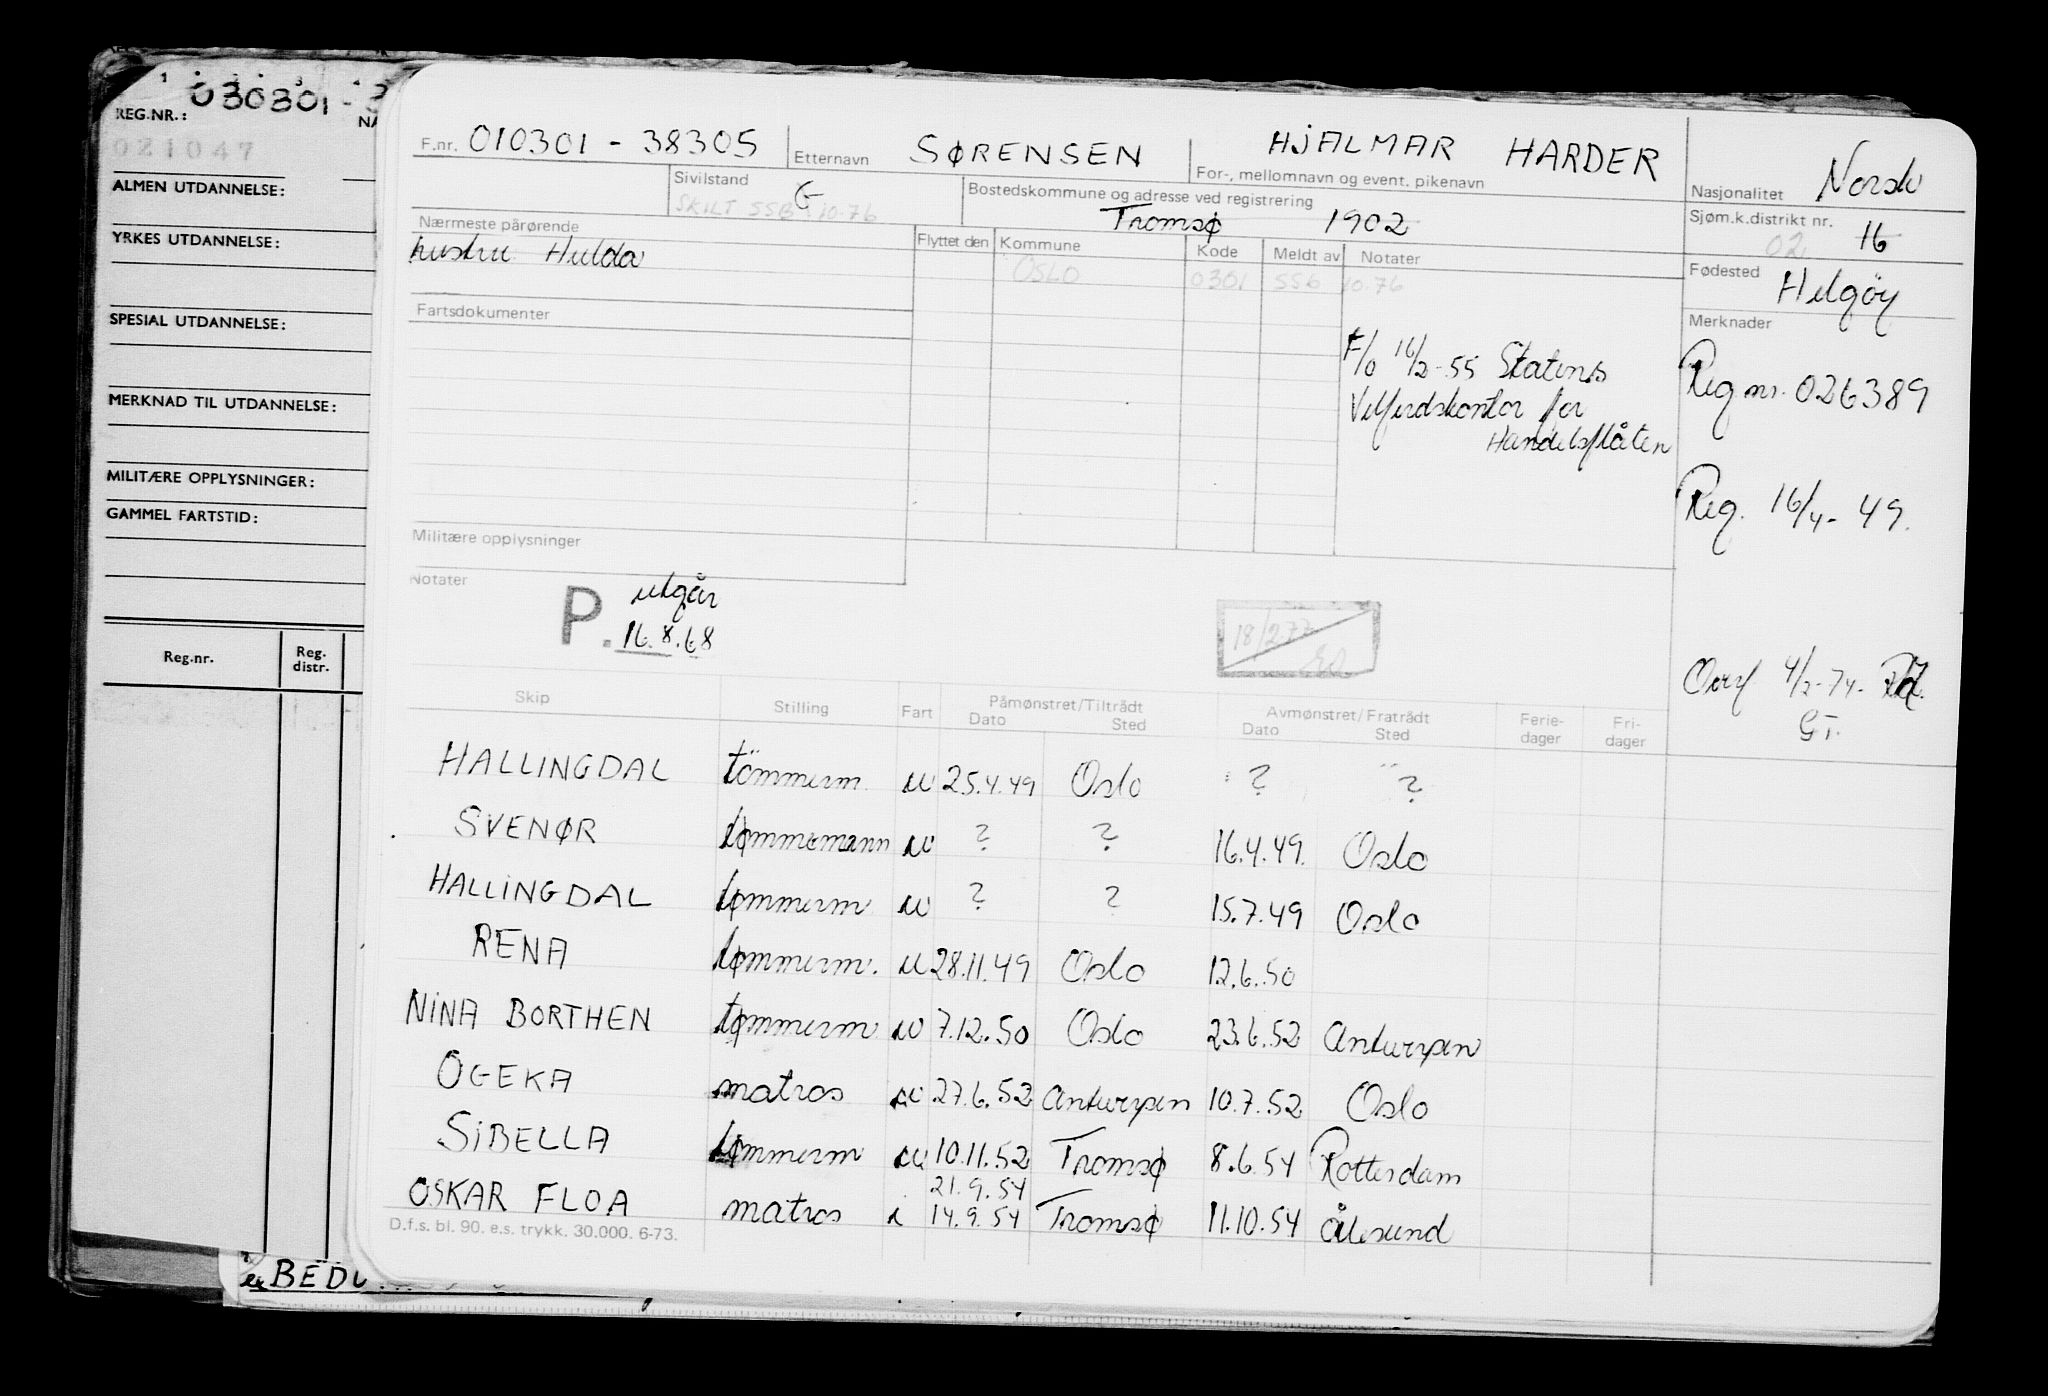 REG.NR.: 030301 - 3
021047
ALMEN UTDANNELSE:
YRKES UTDANNELSE:
SPESIAL UTDANNELSE:
MERKNAD TIL UTDANNELSE:
MILITÆRE OPPLYSNINGER:
GAMMEL FARTSTID:
Reg.nr. Reg. distr.
F.nr. 010301 - 38305 Etternavn SØRENSEN HJALMAR HARDER
For-, mellomnavn og event. pikenavn
Nasjonalitet Norsk
Sivilstand G
SKILT SSB 10-76
Bostedskommune og adresse ved registrering
Tromsø 1902
Sjøm.k.distrikt nr. 16
02
Nærmeste pårørende
hustru Hulda
Flyttet den Kommune Kode Meldt av Notater
OSLO 0301 SSB 10-76
Fødested Helgöy
Fartsdokumenter
Merknader
F/o 16/2-55 Statens
Velferdskontor for
Handelsflåten
Reg nr. 026389
Reg. 16/4-49.
Militære opplysninger
Notater
P. utgår
16.8.68
18/2.77
Overf 4/2-74
G.T.
Skip Stilling Fart Påmønstret/Tiltrådt Dato Sted Avmønstret/Fratrådt Dato Sted Ferie-dager Fri-dager
HALLINGDAL tömmerm. u 25.4.49 Oslo ? ?
SVENØR tømmermann u ? ? 16.4.49. Oslo
HALLINGDAL tømmerm u ? ? 15.7.49 Oslo
RENA tømmerm. u 28.11.49 Oslo 12.6.50
NINA BORTHEN tømmerm u 7.12.50 Oslo 23.6.52 Antwerpen
OGEKA matros u 27.6.52 Antwerpen 10.7.52 Oslo
SIBELLA tømmerm u 10.11.52 Tromsø 8.6.54 Rotterdam
21.9.54
OSKAR FLOA matros i 14.9.54 Tromsø 11.10.54 Ålesund
D.f.s. bl. 90. e.s. trykk. 30.000. 6-73.